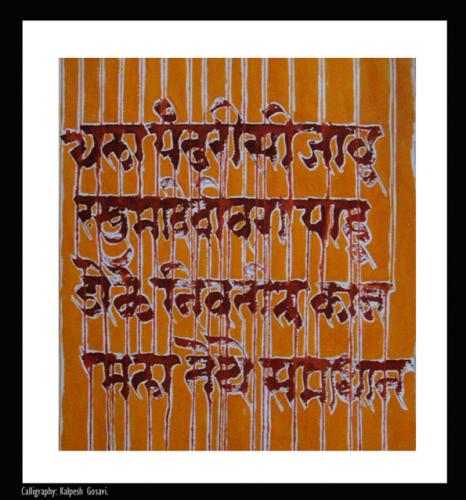 चला पंढरीसी जावू
रखुमादेवीवरा पाहू
डोळे निवतील कान
मना तेथे समाधान
Calligraphy: Kalpesh Gosavi.